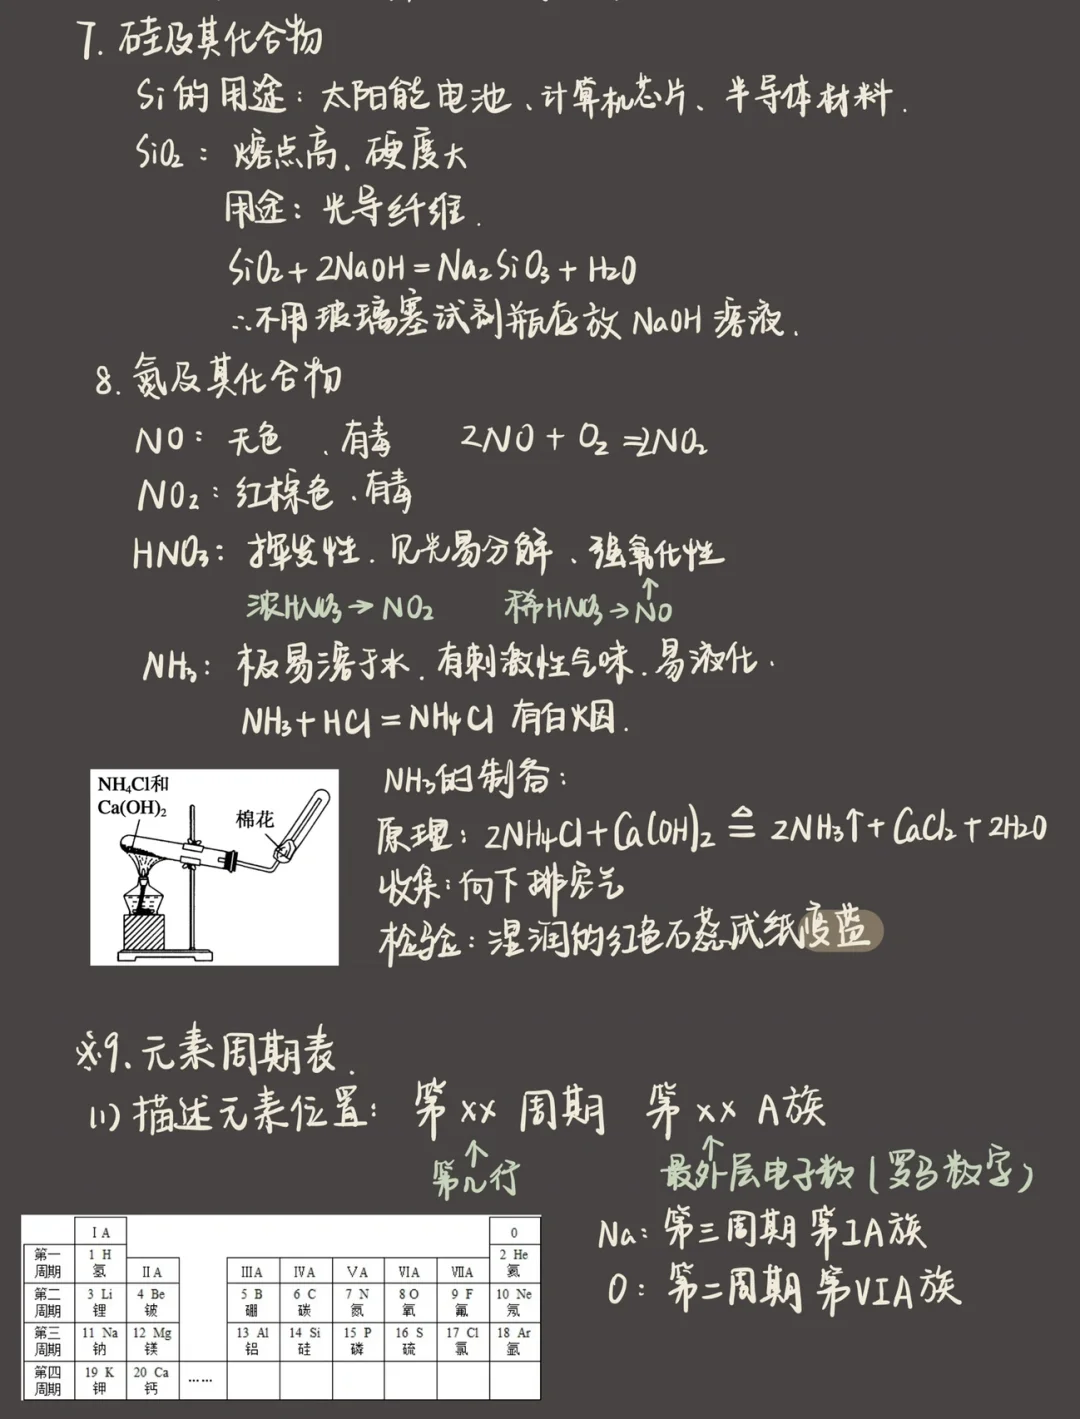 7. 硅及其化合物
Si的用途：太阳能电池、计算机芯片、半导体材料.
SiO₂：熔点高、硬度大
用途：光导纤维.
SiO₂+2NaOH=Na₂SiO₃+H₂O
∴不用玻璃塞试剂瓶存放NaOH溶液.
8. 氮及其化合物
NO：无色、有毒 2NO+O₂=2NO₂
NO₂：红棕色、有毒
HNO₃：挥发性.见光易分解、强氧化性
浓HNO₃→NO₂ 稀HNO₃→NO↑
NH₃：极易溶于水.有刺激性气味.易液化.
NH₃+HCl=NH₄Cl 有白烟.
NH₄Cl和
Ca(OH)₂
棉花
NH₃的制备：
原理：2NH₄Cl+Ca(OH)₂ ≜ 2NH₃↑+CaCl₂+2H₂O
收集：向下排空气
检验：湿润的红色石蕊试纸变蓝
※9.元素周期表.
(1)描述元素位置：第xx周期 第xxA族
↑ ↑
第几行 最外层电子数(罗马数字)
Na：第三周期第IA族
O：第二周期第VIA族
ⅠA 0
第一周期 1 H 氢 ⅡA ⅢA ⅣA ⅤA ⅥA ⅦA 2 He 氦
第二周期 3 Li 锂 4 Be 铍 5 B 硼 6 C 碳 7 N 氮 8 O 氧 9 F 氟 10 Ne 氖
第三周期 11 Na 钠 12 Mg 镁 13 Al 铝 14 Si 硅 15 P 磷 16 S 硫 17 Cl 氯 18 Ar 氩
第四周期 19 K 钾 20 Ca 钙 ……